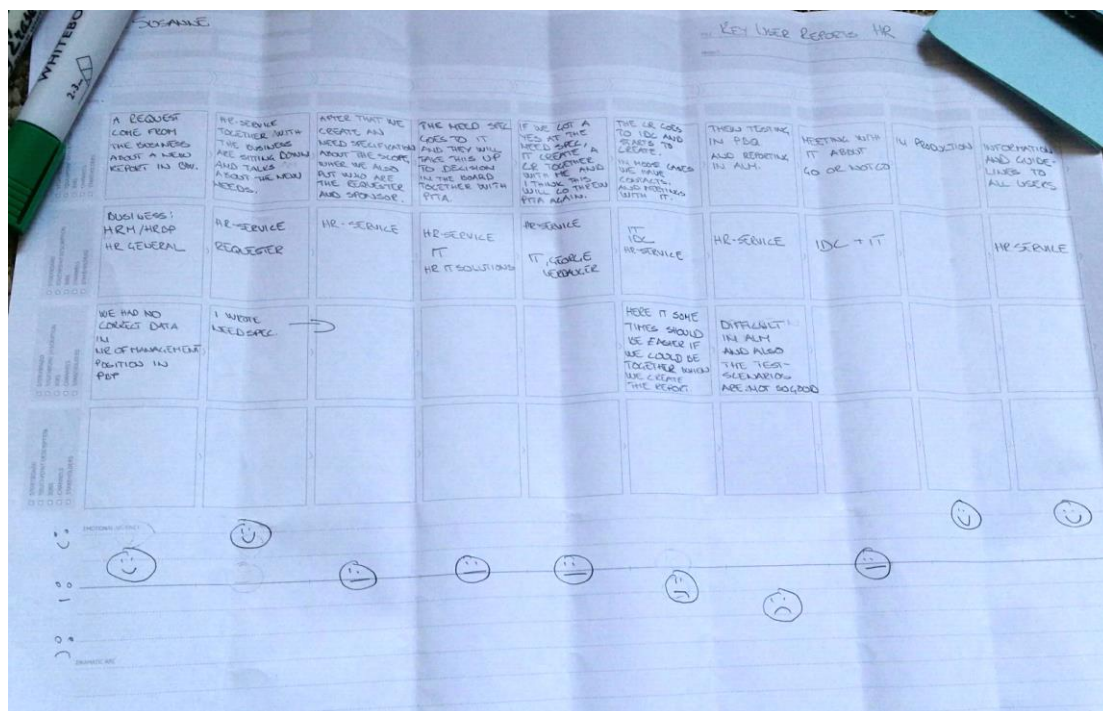 WHITEBO
2-3
SUSANNE
KEY USER REPORTS HR
A REQUEST
COME FROM
THE BUSINESS
ABOUT A NEW
REPORT IN BW.
HR-SERVICE
TOGETHER WITH
THE BUSINESS
ARE SITTING DOWN
AND TALKS
ABOUT THE NEW
NEEDS.
AFTER THAT WE
CREATE AN
NEED SPECIFICATION
ABOUT THE SCOPE,
WHER WE ALSO
PUT WHO ARE
THE REQUESTER
AND SPONSOR.
THE NEED SPEC
GOES TO IT
AND THEY WILL
TAKE THIS UP
TO DECISION
IN THE BOARD
TOGETHER WITH
PTTA.
IF WE GOT A
YES AT THE
NEED SPEC,
IT CREATE A
CR TOGETHER
WITH ME AND
I THINK THIS
WILL GO THREW
PTTA AGAIN.
THE CR GOES
TO IDC AND
STARTS TO
CREATE
IN MOST CASES
WE HAVE
CONTACTS
AND MEETINGS
WITH IT.
THEN TESTING
IN PBQ
AND REPORTING
IN ALM.
MEETING WITH
IT ABOUT
GO OR NOT GO
IN PRODUCTION
INFORMATION
AND GUIDE-
LINES TO
ALL USERS
BUSINESS:
HRM/HRBP
HR GENERAL
HR-SERVICE
REQUESTER
HR-SERVICE
HR-SERVICE
IT
HR IT SOLUTIONS
HR-SERVICE
IT, GEORGE
IT
IDC
HR-SERVICE
HR-SERVICE
IDC + IT
HR SERVICE
WE HAD NO
CORRECT DATA
IN
NR OF MANAGEMENT
POSITION IN
PBP
I WROTE
NEED SPEC
HERE IT SOME
TIMES SHOULD
BE EASIER IF
WE COULD BE
TOGETHER WHEN
WE CREATE
THE REPORT.
DIFFICULT
IN ALM
AND ALSO
THE TEST-
SCENARIOS
ARE NOT SO GOOD
EMOTIONAL JOURNEY
DRAMATIC ARC